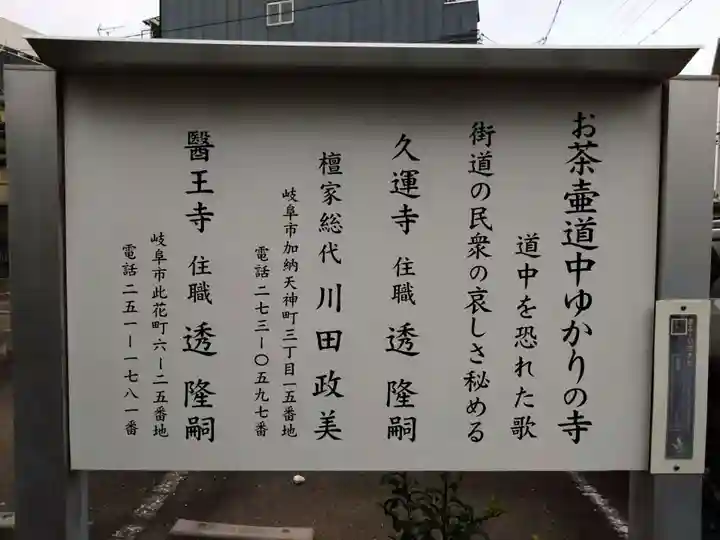 お茶壷道中ゆかりの寺
道中を恐れた歌
街道の民衆の哀しさ秘める
久運寺 住職 透 隆嗣
檀家総代 川田政美
岐阜市加納天神町三丁目一五番地
電話 二七三ー〇五九七番
醫王寺 住職 透 隆嗣
岐阜市此花町六ー二五番地
電話 二五一ー一七八一番